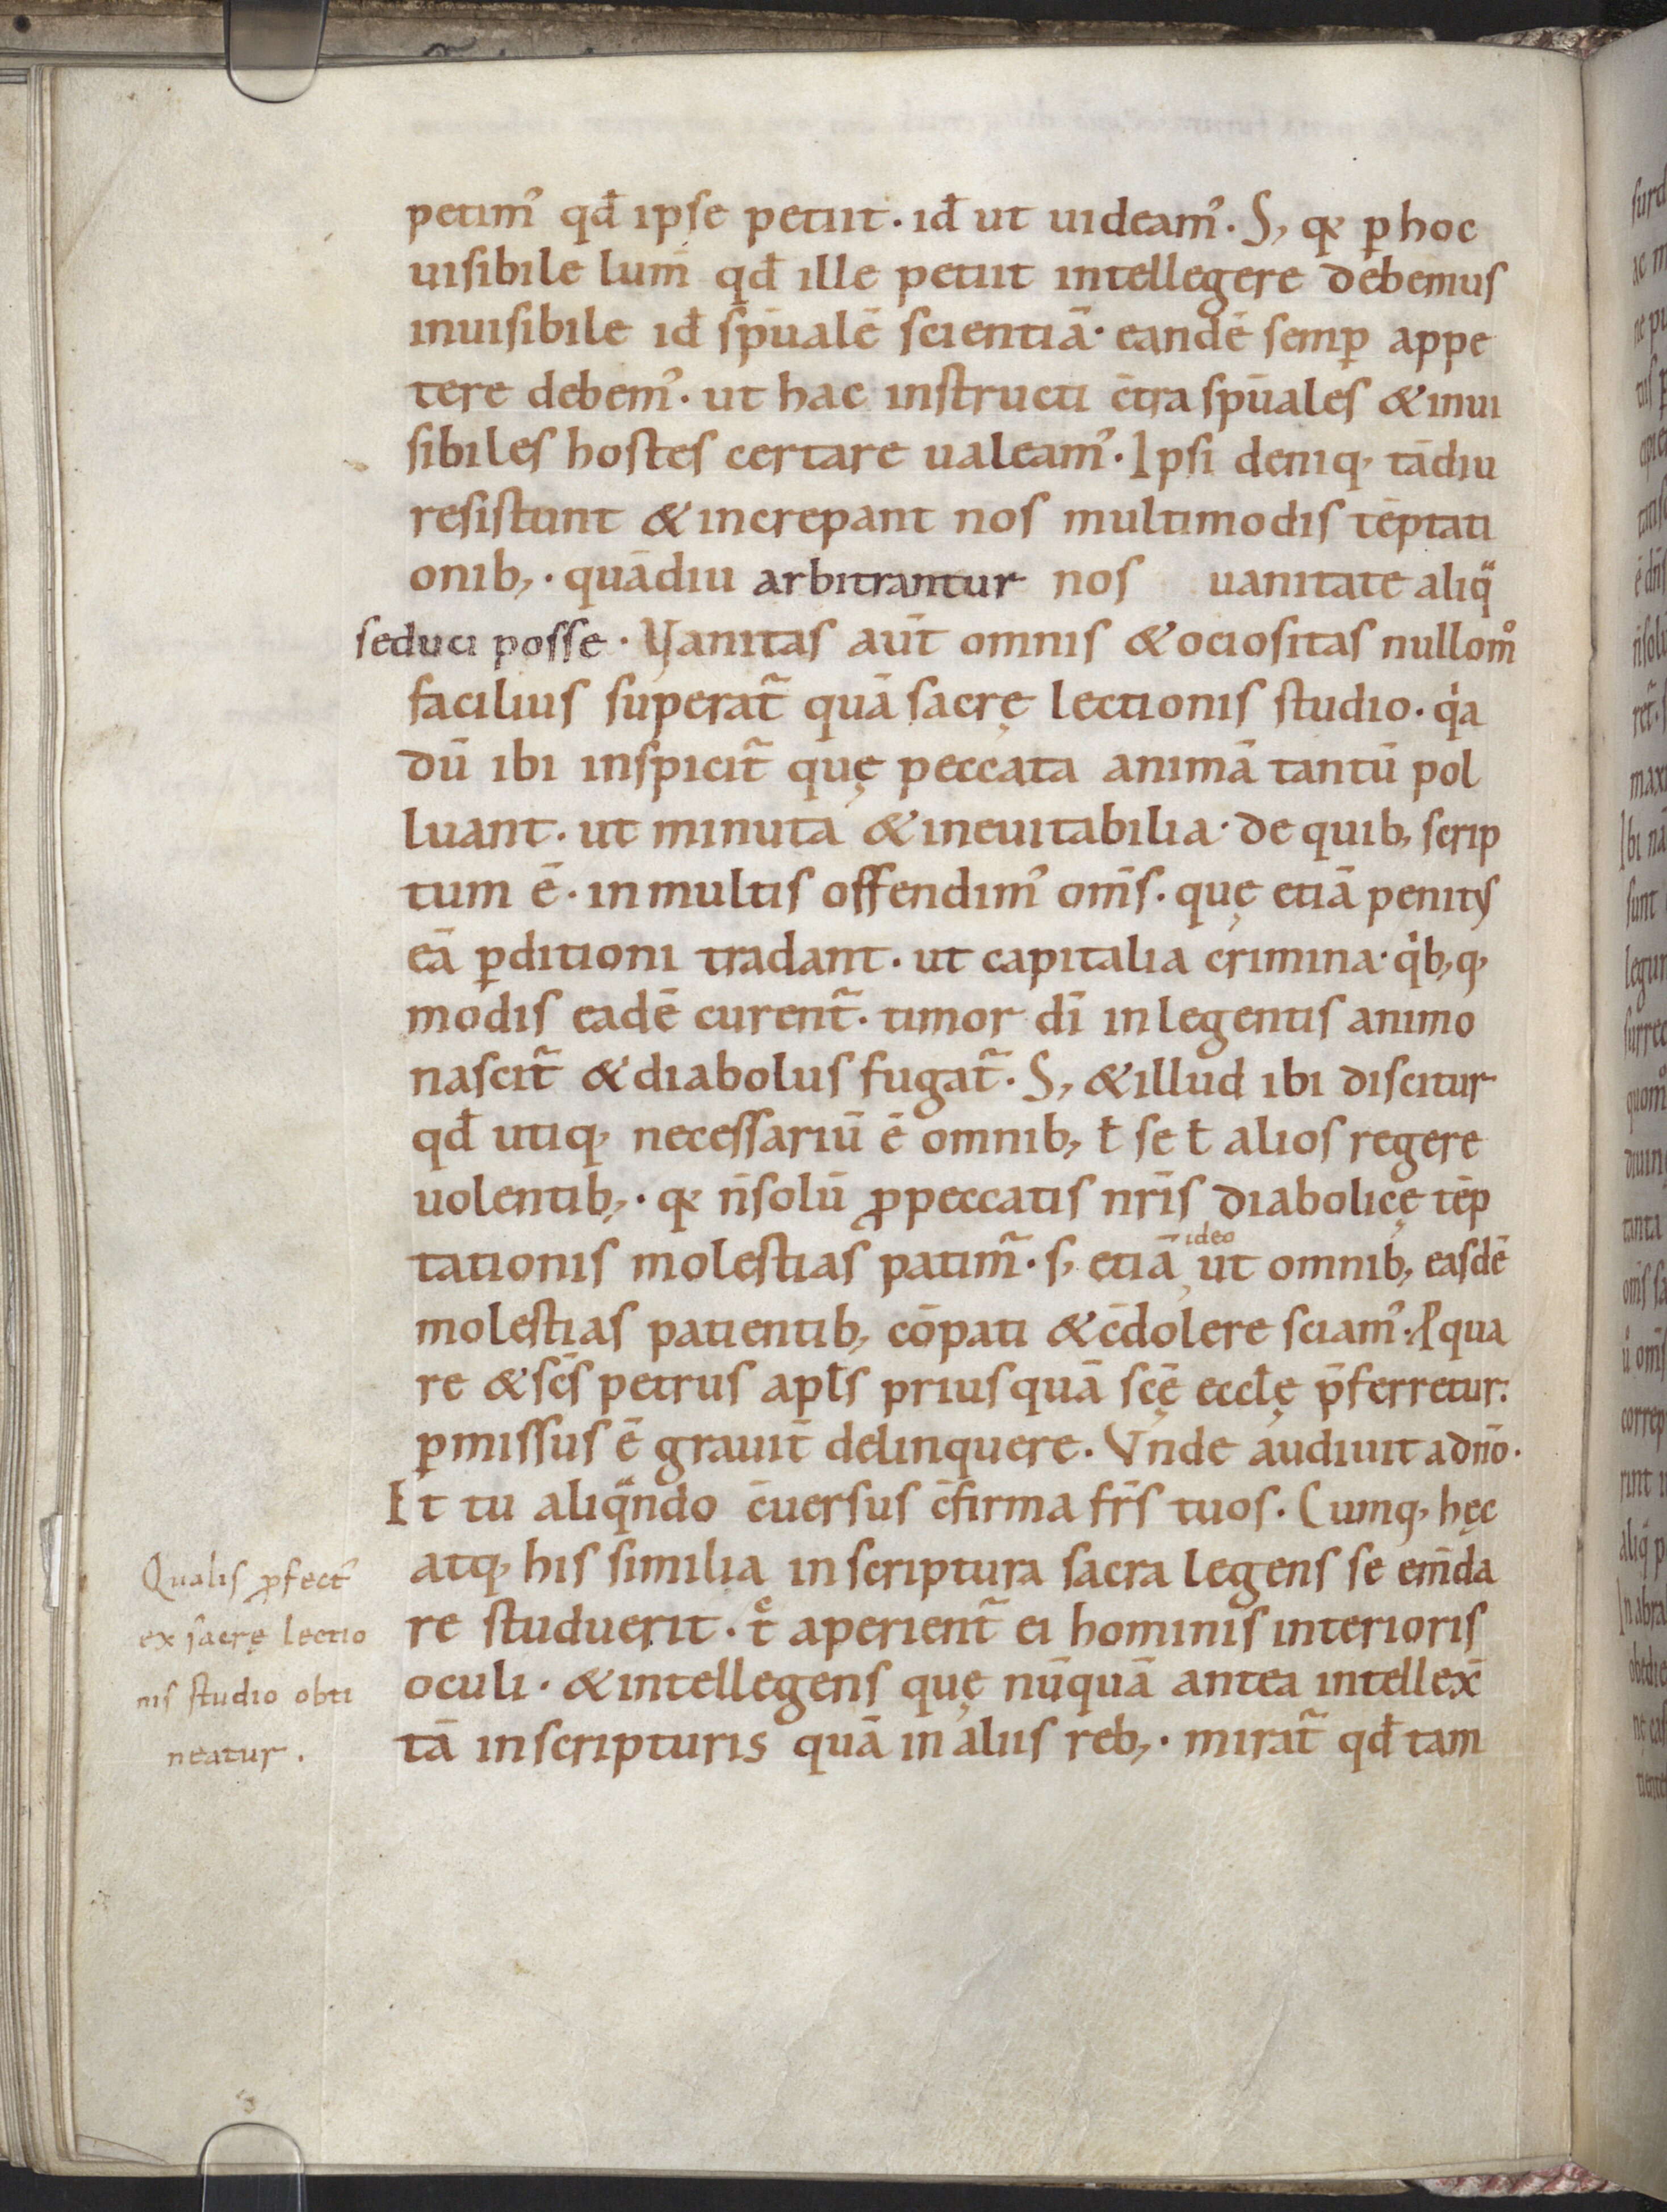 petim᾽ qđ ipse petiit · id̄ ut uideam᾽ · S; qꝛ ꝑ hoc
uisibile lum̄ qđ ille petiit intellegere debemus
inuisibile id̄ sp̄ualē scientiā · eandē semꝑ appe
tere debem᾽ · ut hac instructi c̄tra sp̄uales & inui
sibiles hostes certare ualeam᾽ · Ipsi deniq; tādiu
resistunt & increpant nos multimodis tēptati
onib; · quādiu arbitrantur nos uanitate aliqͣ
seduci posse · Vanitas aut̄ omnis & ociositas nullom̊
facilius superat̄ quā sacrę lectionis studio · qͥa
dū ibi inspicit̄ quę peccata animā tantū pol
luant · ut minuta & ineuitabilia · de quib; scrip
tum ē · in multis offendim᾽ om̄s · quę etiā penitus
eā ꝑditioni tradant · ut capitalia crimina · qͥb;q;
modis eadē curent̄ · timor dī in legentis animo
nascit̄ & diabolus fugat̄ · S; & illud ibi discitur
qđ utiq; necessariū ē omnib; ł se ł alios regere
uolentib; · qꝛ n̄ solū ꝓ peccatis nr̄is diabolicę tēp
tationis molestias patim̄ · s; etiā ideo ut omnib; easdē
molestias patientib; cōpati & c̄dolere sciam᾽ · Ꝓqua
re & sc̄s petrus apłs priusquā sc̄ę eccłę p̄ferretur:
ꝑmissus ē grauit̄ delinquere · Vnde audiuit a dn̄o ·
Et tu aliqͣndo c̄uersus c̄firma fr̄s tuos · Cumq; hęc
atq; his similia in scriptura sacra legens se em̄da
re studuerit · tͨ aperient̄ ei hominis interioris
oculi · & intellegens quę nūquā antea intellex̄
tā in scripturis quā in aliis reb; · mirat̄ qđ tam
Qualis ꝓfect᾽
ex sacrę lectio
nis studio obti
neatur .